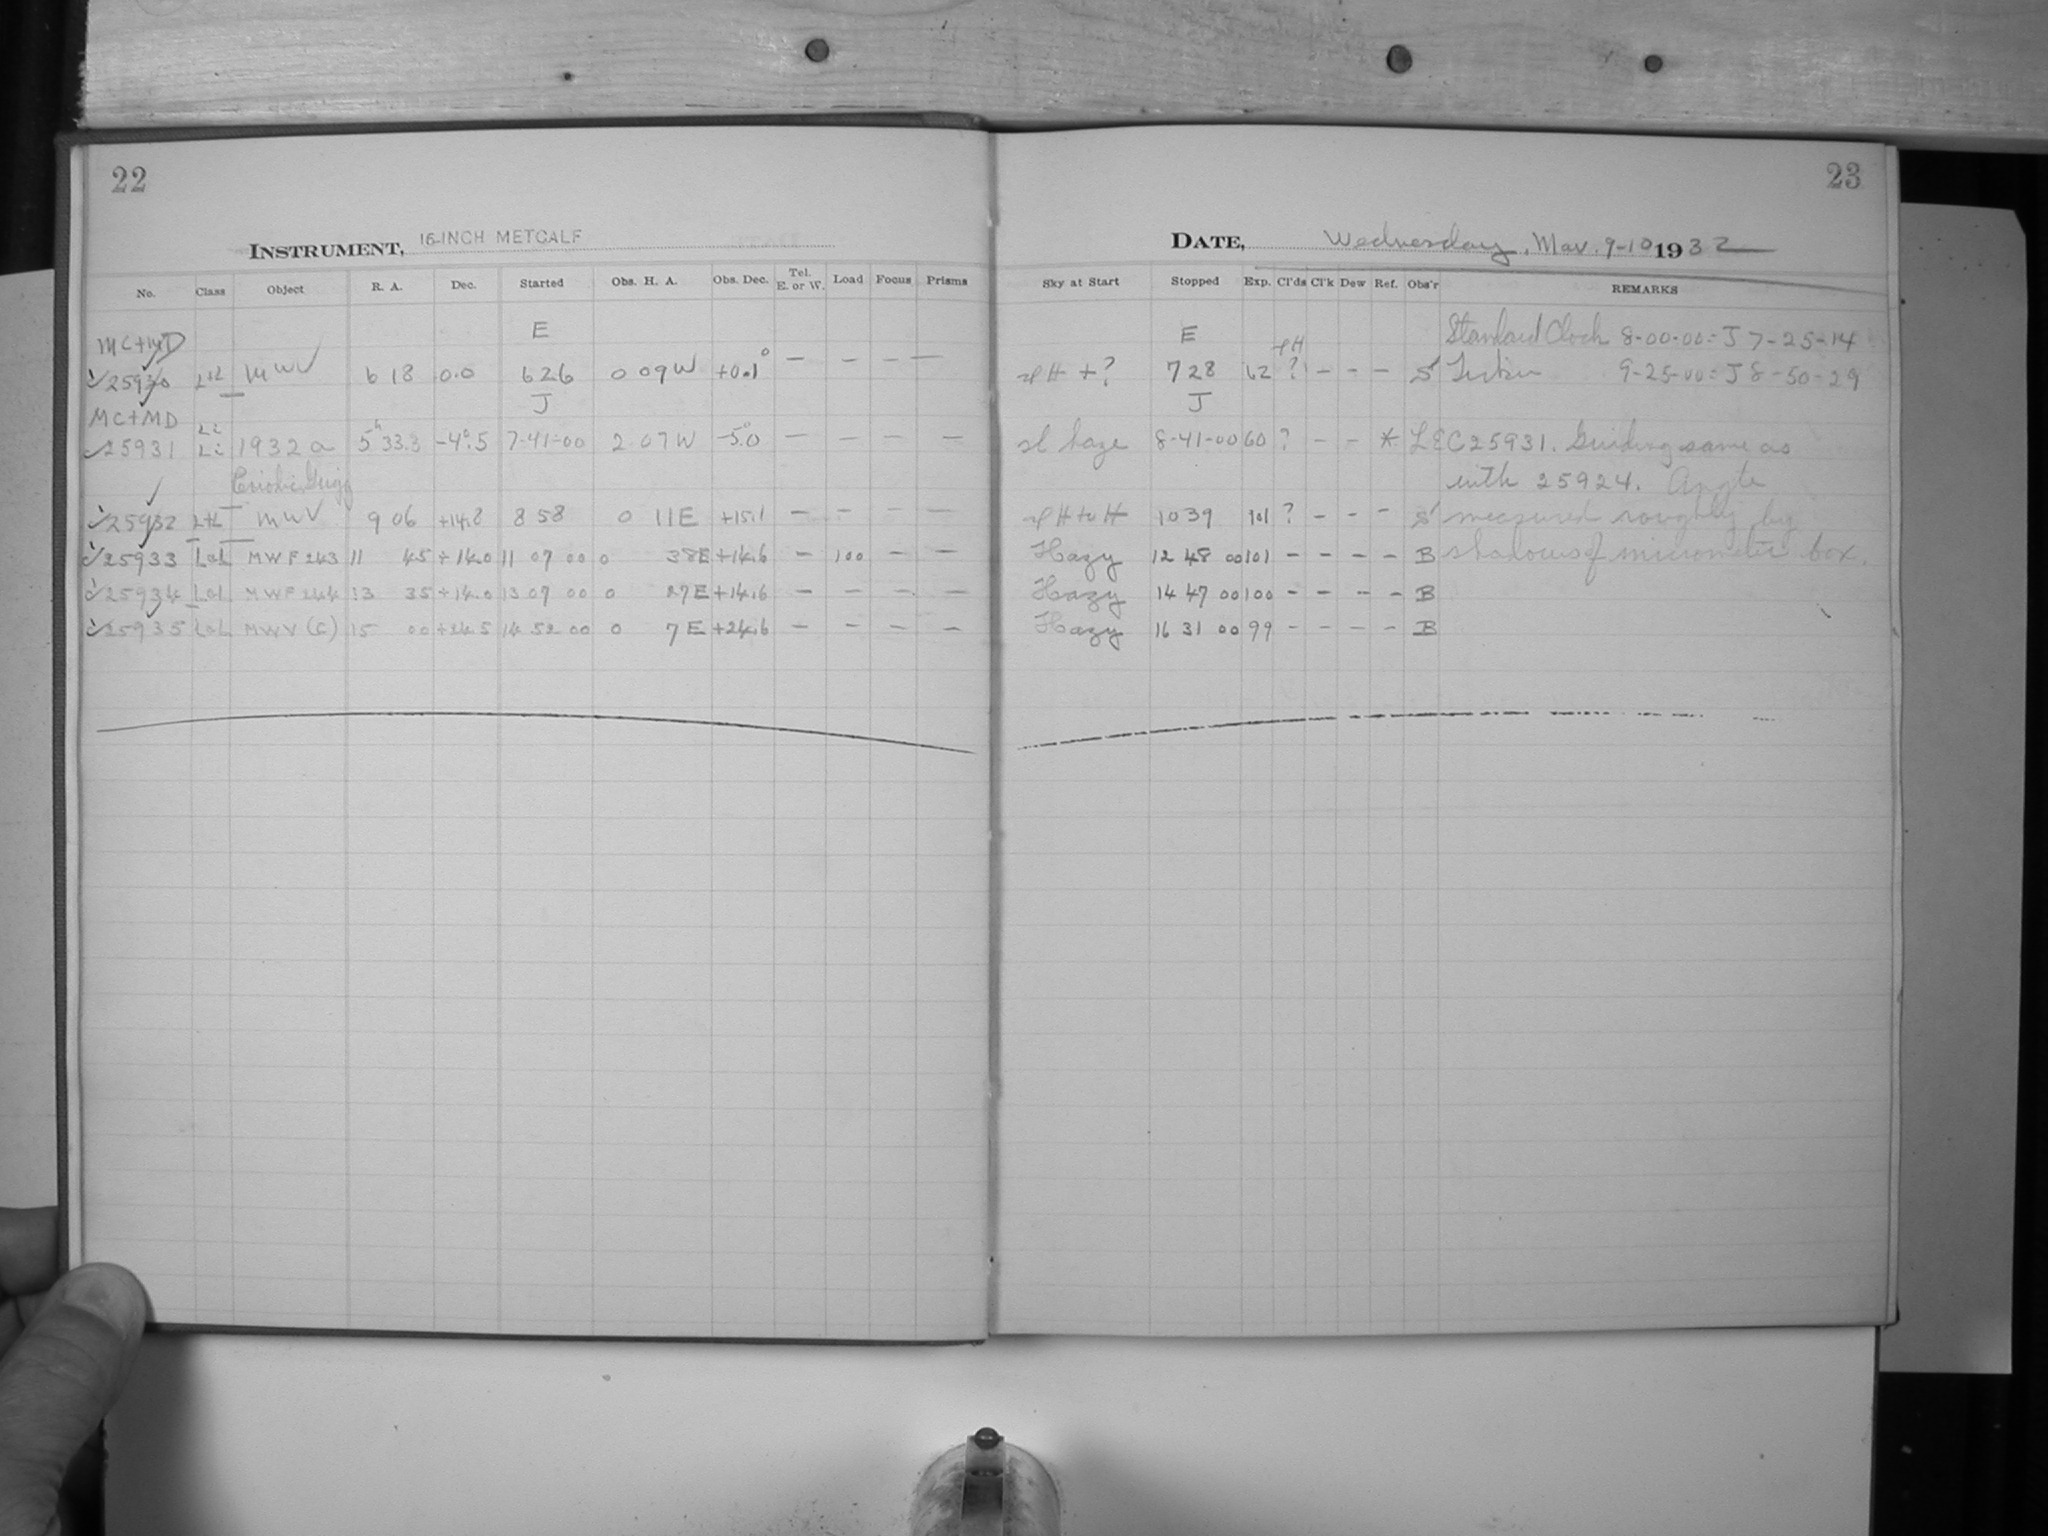 22
INSTRUMENT, 16-INCH METCALF
No. Class Object R. A. Dec. Started Obs. H. A. Obs. Dec. Tel. E. or W. Load Focus Prisms
E
MC+MD
25930 MWV 6 18 0.0 6 26 0 09 W +0.1° — — — —
J
MC+MD
25931 Li Li 1932 a 5h 33.3 -4°.5 7-41-00 2 07 W -5.°0 — — — —
25932 MWV 9 06 +14.8 8 58 0 11 E +15.1 — — — —
25933 LaL MWF 243 11 45 +14.0 11 07 00 0 38 E +14.6 — 100 — —
25934 LaL MWF 244 13 35 +14.0 13 07 00 0 27 E +14.6 — — — —
25935 LaL MWV (C) 15 00 +24.5 14 52 00 0 7 E +24.6 — — — —
23
DATE, Wednesday, Mar. 9-10 1932
Sky at Start Stopped Exp. Cl'ds Cl'k Dew Ref. Obs'r REMARKS
E Standard Clock 8-00-00 = J 7-25-14
sl H + ? 7 28 62 sl H ? — — — S 9-25-00 = J 8-50-29
J
sl haze 8-41-00 60 ? — — * LEC 25931. Guiding same as
with 25924. Angle
sl H to H 10 39 101 ? — — — S measured roughly by
Hazy 12 48 00 101 — — — — B shadows of micrometer box.
Hazy 14 47 00 100 — — — — B
Hazy 16 31 00 99 — — — — B